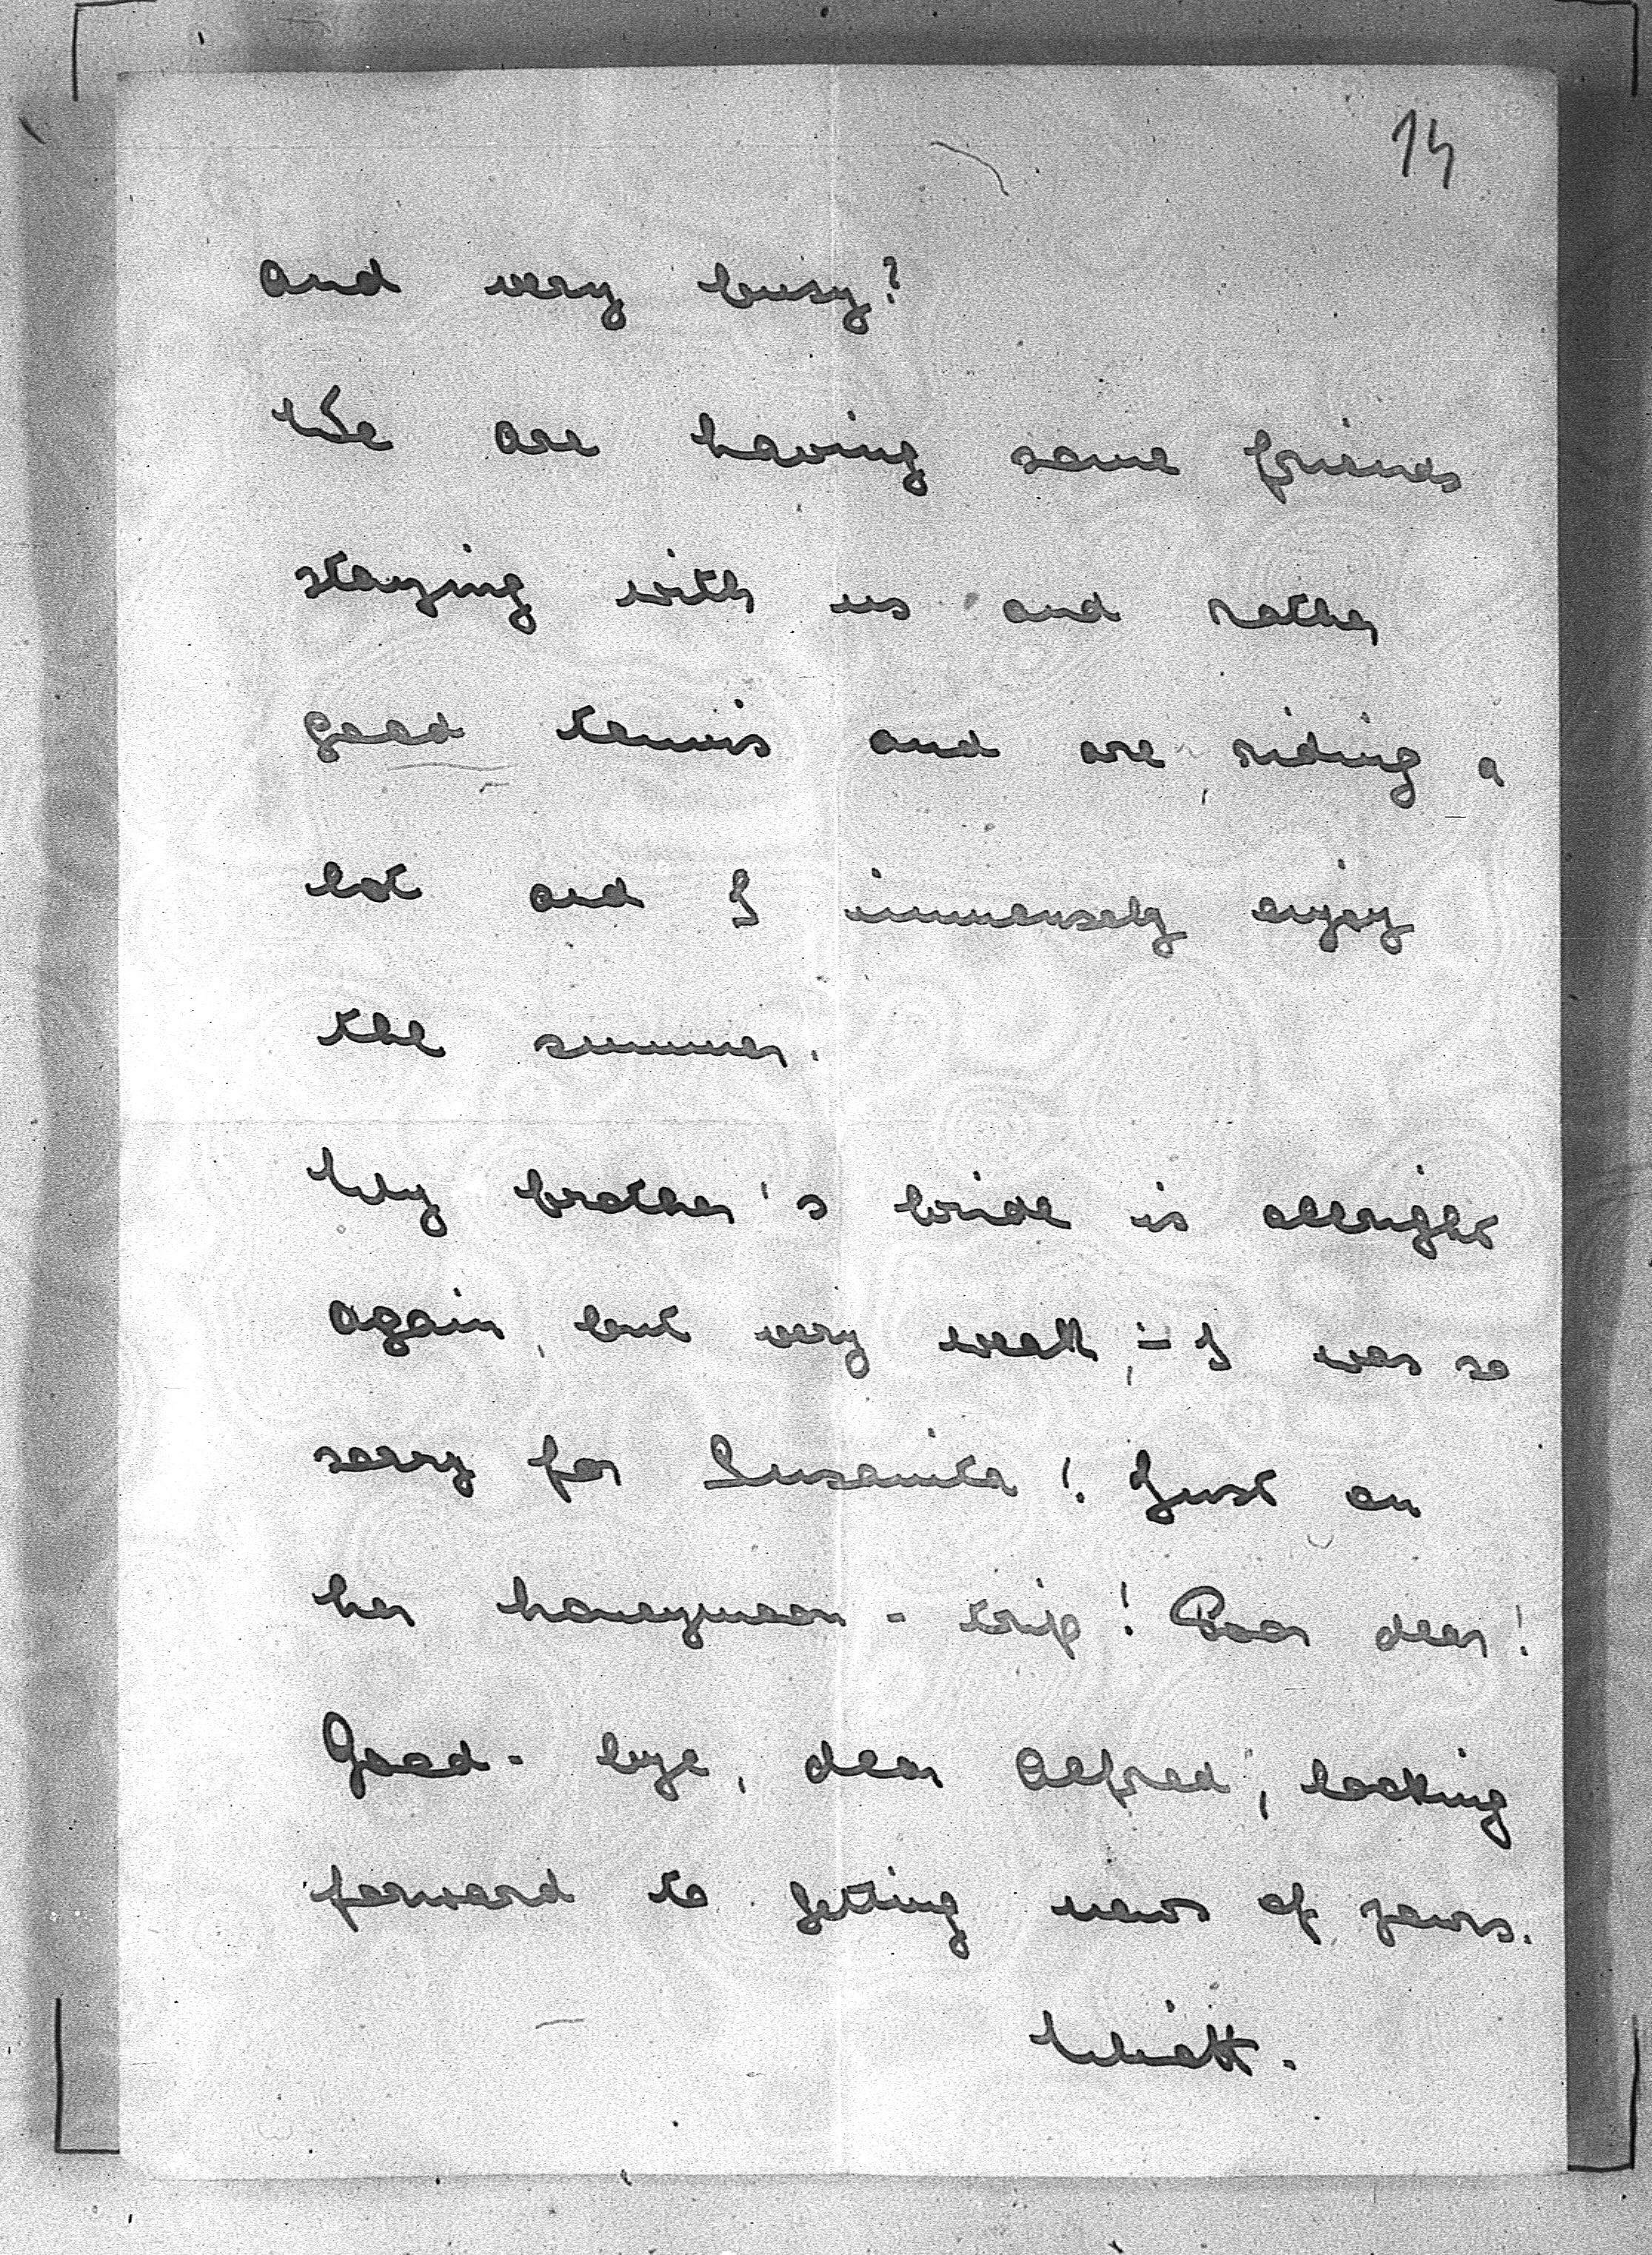 14
and very busy?
We are having some friends
staying with us and rather
good tennis and are riding a
lot and I immensely enjoy
the summer.
My brother's bride is allright
again, but very weak, - I was so
sorry for Susanita! Just on
her honeymoon - trip! Poor dear!
Good - bye, dear Alfred, looking
forward to getting news of yours.